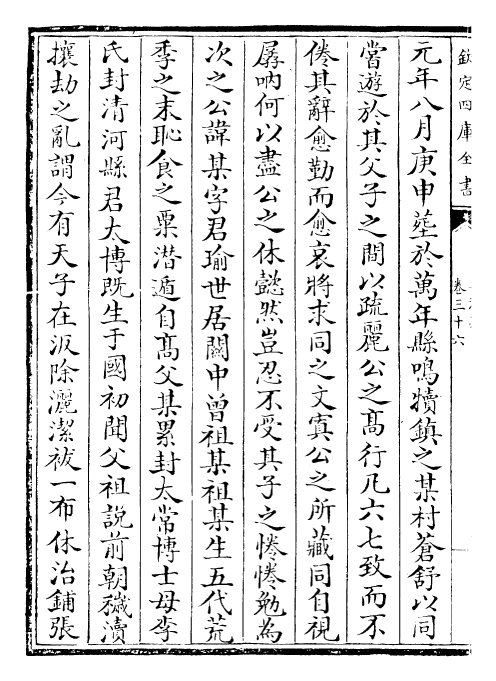 欽定四庫全書
卷三十六
元年八月庚申塟於萬年縣鳴犢鎮之某村蒼舒以同
當遊於其父子之間以疏麗公之髙行凡六七致而不
倦其辭愈勤而愈哀將求同之文寘公之所藏同自視
孱吶何以盡公之休懿然豈忍不受其子之惓惓勉為
次之公諱某字君瑜世居關中曾祖某祖某生五代荒
季之末恥食之粟潛遁自髙父某累封太常博士母李
氏封清河縣君太博既生于國初聞父祖說前朝穢瀆
攘劫之亂謂今有天子在汳除灑潔祓一布休治鋪張